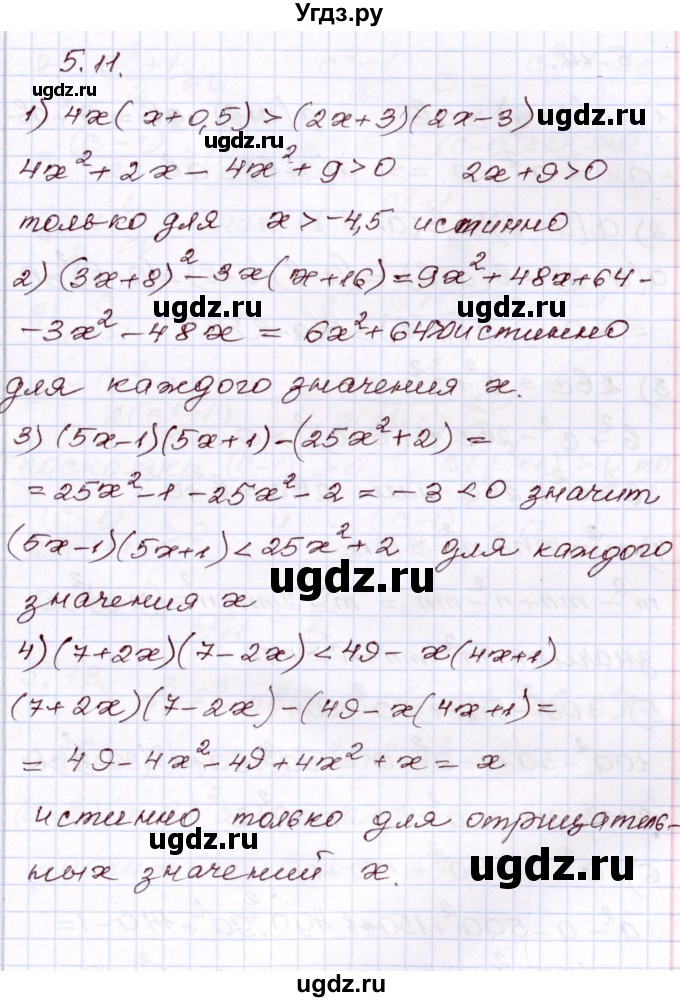 Угдз.ру
5.11.
ugdz.ru
1) 4x(x+0,5)>(2x+3)(2x-3)
ugdz.ru ugdz.ru
4x²+2x-4x²+9>0 2x+9>0
только для x>-4,5 истинно
2) (3x+8)²-3x(x+16)=9x²+48x+64-
ugdz.ru ugdz.ru
-3x²-48x = 6x²+64>0 истинно
для каждого значения x.
ugdz.ru
3) (5x-1)(5x+1)-(25x²+2)=
ugdz.ru
=25x²-1-25x²-2=-3<0 значит
(5x-1)(5x+1)<25x²+2 для каждого
ugdz.ru
значения x
4) (7+2x)(7-2x)<49-x(4x+1)
ugdz.ru
(7+2x)(7-2x)-(49-x(4x+1)=
=49-4x²-49+4x²+x=x
истинно только для отрицатель-
ugdz.ru ugdz.ru
ных значений x.
ugdz.ru
ugdz.ru